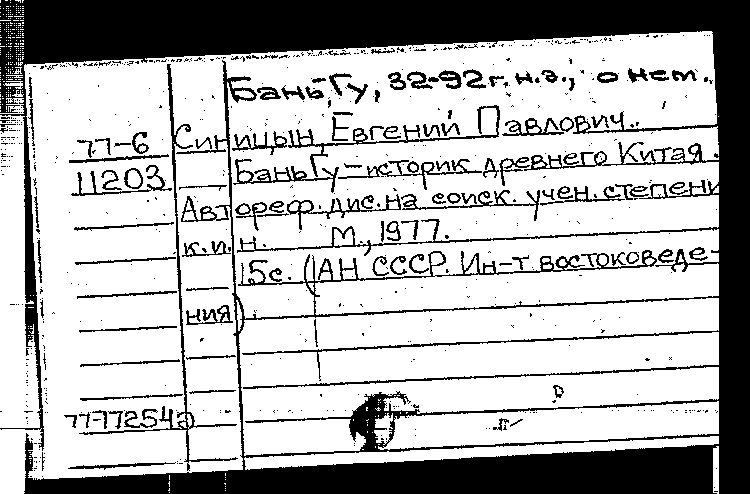 Бань Гу, 32-92 г. н.э., о нем.
77-6 Синицын, Евгений Павлович.
11203 Бань Гу - историк древнего Китая.
Автореф. дис. на соиск. учен. степени
к.и.н. М., 1977.
15с. (АН СССР. Ин-т востоковеде-
ния).
77-77254а